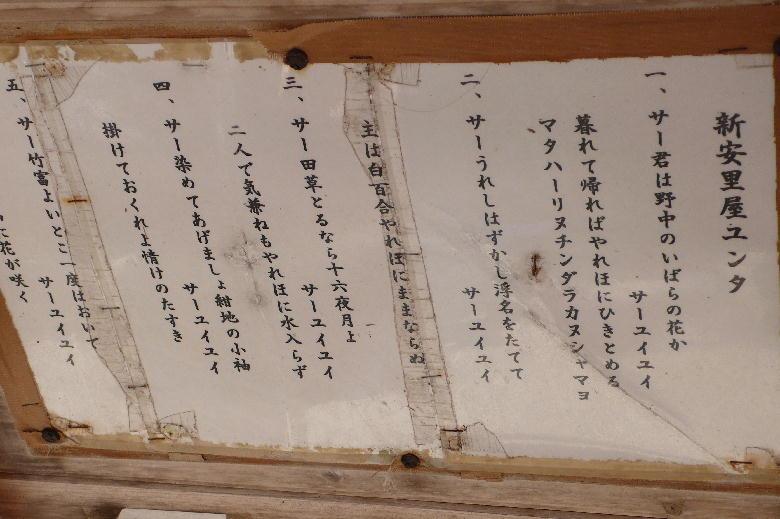 新安里屋ユンタ
一、サー君は野中のいばらの花か
サーユイユイ
暮れて帰ればやれほにひきとめる
マタハーリヌチンダラカヌシャマヨ
二、サーうれしはずかし浮名をたてて
サーユイユイ
主は白百合やれほにままならぬ
三、サー田草とるなら十六夜月よ
サーユイユイ
二人で気兼ねもやれほに水入らず
四、サー染めてあげましょ紺地の小袖
サーユイユイ
掛けておくれよ情けのたすき
五、サー竹富よいとこ一度はおいで
サーユイユイ
に花が咲く